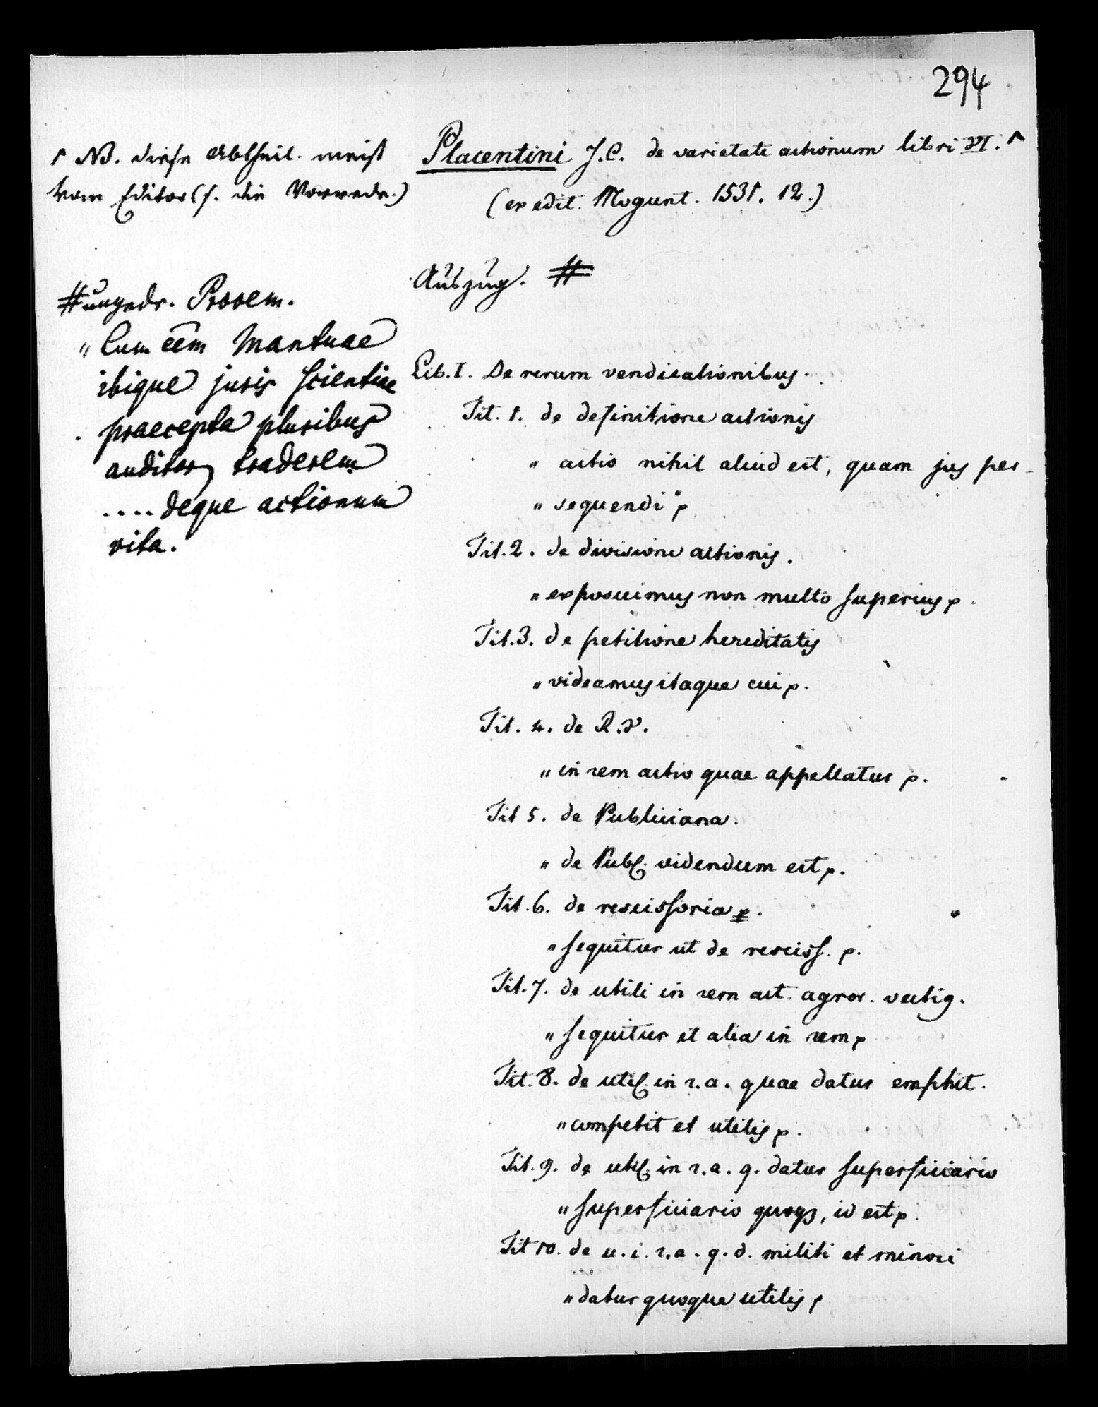 294
Placentini J.C. de varietate actionum libri VI.
(ex edit. Mogunt. 1531. 12.)
NB. diese Abtheil. meist
vom Editor (s. die Vorrede.)
Auszug. #
# ungedr. Prooem.
„ Cum eēm Mantuae
ibique juris scientiae
praecepta pluribus
auditor traderem
.... deque actionum
vita.
Lib. I. De rerum vendicationibus.
Tit. 1. de definitione actionis
„ actio nihil aliud est, quam jus per-
„ sequendi“
Tit. 2. de divisione actionis.
„ exposuimus non multo superius
Tit. 3. de petitione hereditatis
„ videamus itaque cui
Tit. 4. de R.V.
„ in rem actio quae appellatur
Tit 5. de Publiciana.
„ de Publ. videndum est
Tit. 6. de rescissoria
„ sequitur ut de resciss.
Tit. 7. de utili in rem act. agror. vectig.
„ sequitur et alia in rem
Tit. 8. de util. in r. a. quae datur emphit.
„ competit et utilis
Tit. 9. de util. in r. a. q. datur superficiario
„ superficiario quoq, id est
Tit 10. de u. i. r. a. q. d. militi et minori
„ datur quoque utilis